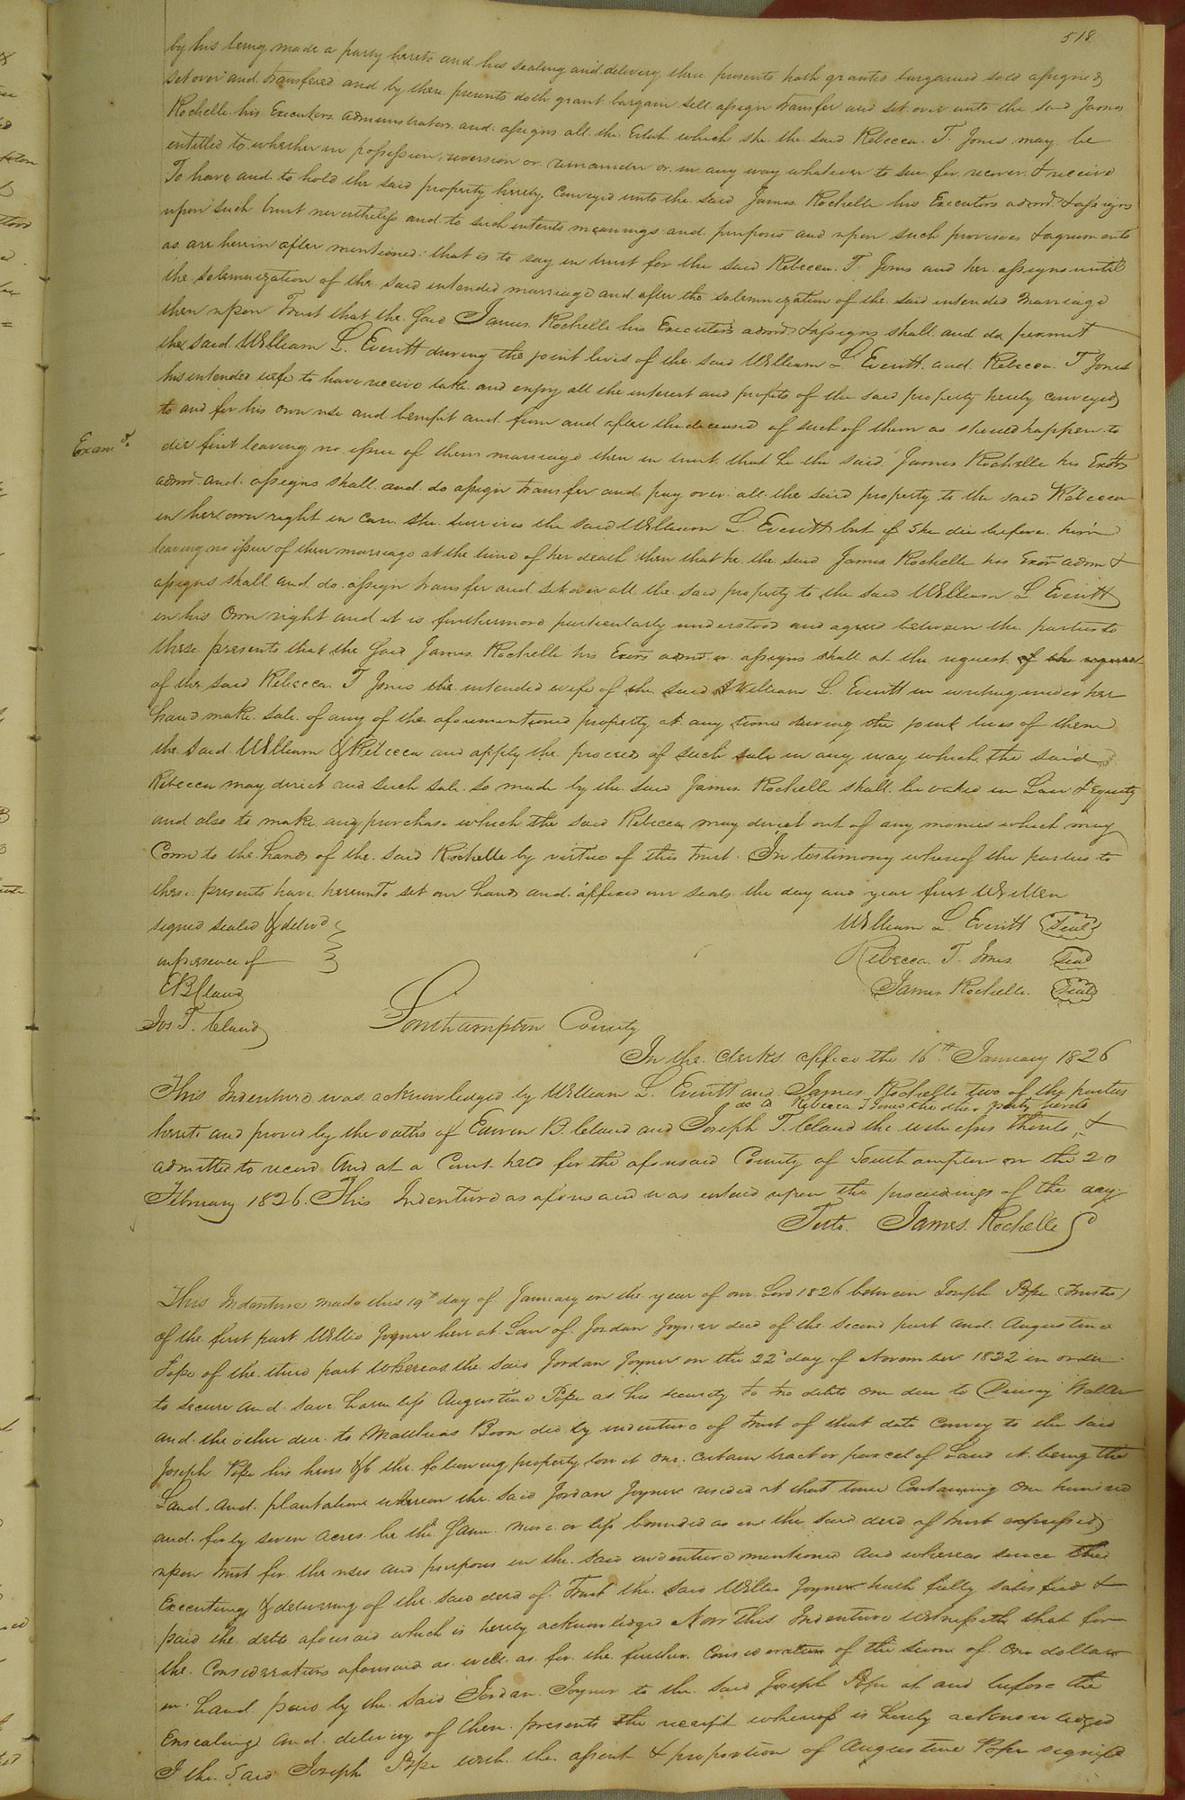 518
by his being made a party hereto and his sealing and delivery these presents hath granted bargained sold assigned
set over and transfered and by these presents doth grant bargain sell assign transfer and set over unto the said James
Rochelle his Executors administrators and assigns all the Estate which she the said Rebecca T. Jones may be
entitled to whether in possession, reversion or remainder or in any way whatever to sue for recover & receive
To have and to hold the said property hereby conveyed unto the said James Rochelle his Executors admrs & assigns
upon such trust nevertheless and to such intents meanings and purposes and upon such provisoes & agreements
as are herein after mentioned that is to say in trust for the said Rebecca T. Jones and her assigns until
the solemnization of the said intended marriage and after the solemnization of the said intended marriage
then upon Trust that the said James Rochelle his Executors admrs & assigns shall and do permit
the said William L. Everitt during the joint lives of the said William L Everitt and Rebecca T Jones
his intended wife to have receive take and enjoy all the interest and profits of the said property hereby conveyed
to and for his own use and benefit and from and after the decease of such of them as should happen to
Exam.d
die first leaving no issue of them marriage then in trust that he the said James Rochelle his Exors
admrs and assigns shall and do assign transfer and pay over all the said property to the said Rebecca
in her own right in case she survives the said William L. Everitt but if she die before him
leaving no issue of their marriage at the time of her death then that he the said James Rochelle his Exors adm &
assigns shall and do assign transfer and set over all the said property to the said William L Everitt
in his own right and it is furthermore particularly understood and agreed between the parties to
these presents that the said James Rochelle his Exors admrs or assigns shall at the request of the request
of the said Rebecca T Jones the intended wife of the said William L. Everitt in writing under her
hand make sale of any of the aforementioned property at any time during the joint lives of them
the said William & Rebecca and apply the proceeds of such sale in any way which the said
Rebecca may direct and such sale so made by the said James Rochelle shall be valid in Law & Equity
and also to make any purchase which the said Rebecca may direct out of any monies which may
Come to the hands of the said Rochelle by virtue of this trust. In testimony whereof the parties to
these presents have hereunto set our hands and affixed our seals the day and year first Written
signed sealed & delivd William L. Everitt Seal
in presence of Rebecca T. Jones Seal
E B Cland James Rochelle Seal
Jos T. Cland
Southampton County
In the clerks office the 16th January 1826
This Indenture was acknowledged by William L. Everitt and James Rochelle two of the parties
as to Rebecca T Jones the other party hereto
hereto and proved by the oaths of B. Cland and Joseph T. Cland the witnesses thereto &
admitted to record And at a Court held for the aforesaid County of Southampton on the 20
February 1826. This Indenture as aforesaid was entered upon the proceedings of the day
Teste. James Rochelle
This Indenture made this 19th day of January in the year of our Lord 1826 between Joseph Pope (Trustee)
of the first part Willie Joyner heir at Law of Jordan Joyner decd of the second part and Augustine
Pope of the third part Whereas the said Jordan Joyner on the 22d day of November 1822 in order
to secure and save harmless Augustine Pope as his security to two debts one due to Drury Waller
and the other due to Matthias Boon did by indenture of trust of that date convey to the said
Joseph Pope his heirs &c the following property to wit one certain tract or parcel of Land it being the
Land and plantation whereon the said Jordan Joyner resided at that time Containing one hundred
and forty seven acres be the same more or less bounded as in the said deed of trust expressed
upon trust for the uses and purposes in the said indenture mentioned and whereas since the
Executing & delivering of the said deed of Trust the said Willie Joyner hath fully satisfied &
paid the debts aforesaid which is hereby acknowledged Now This Indenture Witnesseth that for
the Considerations aforesaid as well as for the further consideration of the sum of one dollar
in hand paid by the said Jordan Joyner to the said Joseph Pope at and before the
Ensealing and delivery of these presents the receipt whereof is hereby acknowledged
I the said Joseph Pope with the assent & proportion of Augustine Pope signifie